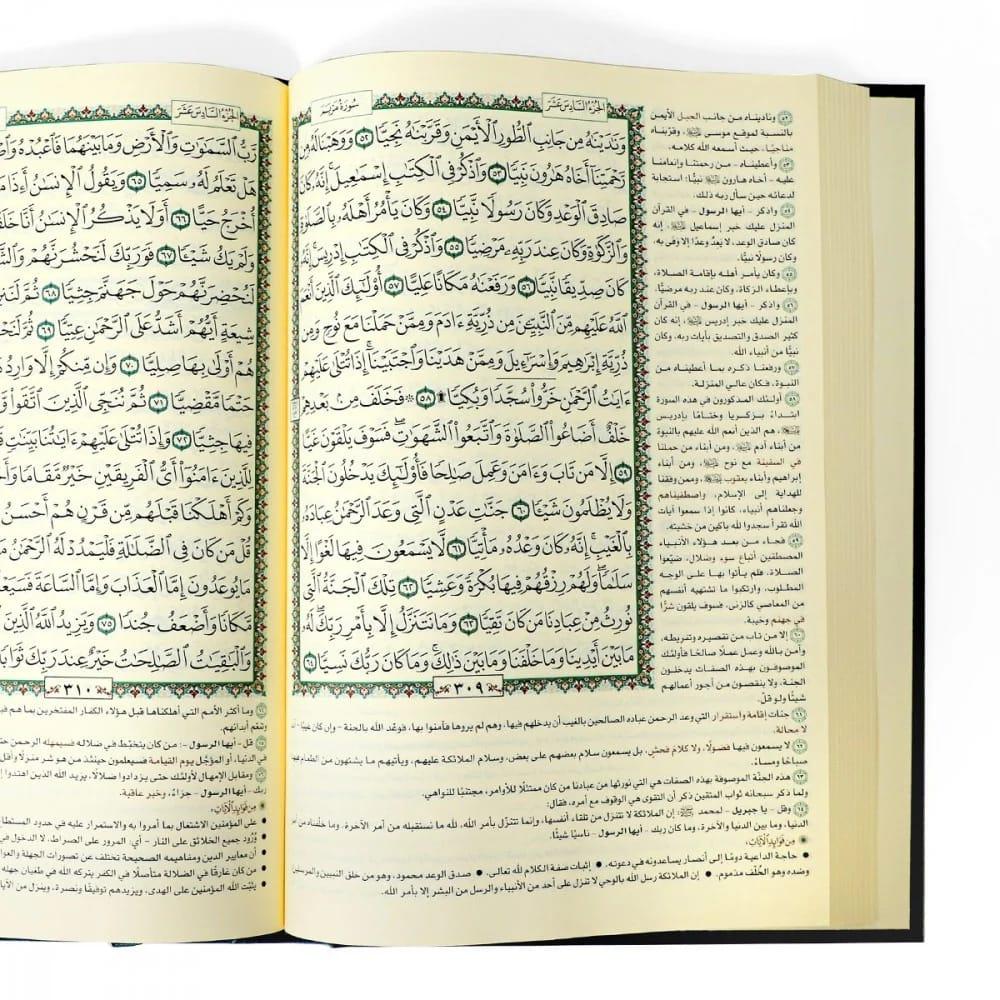 الجزء السادس عشر
سورة مريم
وَنَٰدَيْنَٰهُ مِن جَانِبِ ٱلطُّورِ ٱلْأَيْمَنِ وَقَرَّبْنَٰهُ نَجِيًّا ٥٢ وَوَهَبْنَا لَهُۥ مِن
رَّحْمَتِنَآ أَخَاهُ هَٰرُونَ نَبِيًّا ٥٣ وَٱذْكُرْ فِي ٱلْكِتَٰبِ إِسْمَٰعِيلَ إِنَّهُۥ كَانَ
صَادِقَ ٱلْوَعْدِ وَكَانَ رَسُولًا نَّبِيًّا ٥٤ وَكَانَ يَأْمُرُ أَهْلَهُۥ بِٱلصَّلَوٰةِ
وَٱلزَّكَوٰةِ وَكَانَ عِندَ رَبِّهِۦ مَرْضِيًّا ٥٥ وَٱذْكُرْ فِي ٱلْكِتَٰبِ إِدْرِيسَ إِنَّهُۥ
كَانَ صِدِّيقًا نَّبِيًّا ٥٦ وَرَفَعْنَٰهُ مَكَانًا عَلِيًّا ٥٧ أُو۟لَٰٓئِكَ ٱلَّذِينَ أَنْعَمَ
ٱللَّهُ عَلَيْهِم مِّنَ ٱلنَّبِيِّـۧنَ مِن ذُرِّيَّةِ ءَادَمَ وَمِمَّنْ حَمَلْنَا مَعَ نُوحٍ وَمِن
ذُرِّيَّةِ إِبْرَٰهِيمَ وَإِسْرَٰٓءِيلَ وَمِمَّنْ هَدَيْنَا وَٱجْتَبَيْنَآ إِذَا تُتْلَىٰ عَلَيْهِمْ
ءَايَٰتُ ٱلرَّحْمَٰنِ خَرُّوا۟ سُجَّدًا وَبُكِيًّا ۩ ٥٨ ۞ فَخَلَفَ مِنۢ بَعْدِهِمْ
خَلْفٌ أَضَاعُوا۟ ٱلصَّلَوٰةَ وَٱتَّبَعُوا۟ ٱلشَّهَوَٰتِ فَسَوْفَ يَلْقَوْنَ غَيًّا
٥٩ إِلَّا مَن تَابَ وَءَامَنَ وَعَمِلَ صَٰلِحًا فَأُو۟لَٰٓئِكَ يَدْخُلُونَ ٱلْجَنَّةَ
وَلَا يُظْلَمُونَ شَيْـًٔا ٦٠ جَنَّٰتِ عَدْنٍ ٱلَّتِي وَعَدَ ٱلرَّحْمَٰنُ عِبَادَهُۥ
بِٱلْغَيْبِ إِنَّهُۥ كَانَ وَعْدُهُۥ مَأْتِيًّا ٦١ لَّا يَسْمَعُونَ فِيهَا لَغْوًا إِلَّا
سَلَٰمًا وَلَهُمْ رِزْقُهُمْ فِيهَا بُكْرَةً وَعَشِيًّا ٦٢ تِلْكَ ٱلْجَنَّةُ ٱلَّتِي
نُورِثُ مِنْ عِبَادِنَا مَن كَانَ تَقِيًّا ٦٣ وَمَا نَتَنَزَّلُ إِلَّا بِأَمْرِ رَبِّكَ لَهُۥ
مَا بَيْنَ أَيْدِينَا وَمَا خَلْفَنَا وَمَا بَيْنَ ذَٰلِكَ وَمَا كَانَ رَبُّكَ نَسِيًّا ٦٤
٣٠٩
٥٢ وناديناه من جانب الجبل الأيمن
بالنسبة لموقع موسى ﷺ، وقربناه
مناجيًا، حيث أسمعه الله كلامه.
٥٣ وأعطيناه - من رحمتنا وإنعامنا
عليه - أخاه هارون ﷺ نبيًّا؛ استجابة
لدعائه حين سأل ربه ذلك.
٥٤ واذكر - أيها الرسول - في القرآن
المنزل عليك خبر إسماعيل ﷺ، إنه
كان صادق الوعد، لا يعد وعدًا إلا وفى به،
وكان رسولًا نبيًّا.
٥٥ وكان يأمر أهله بإقامة الصلاة،
وبإعطاء الزكاة، وكان عند ربه مرضيًّا.
٥٦ واذكر - أيها الرسول - في القرآن
المنزل عليك خبر إدريس ﷺ، إنه كان
كثير الصدق والتصديق بآيات ربه، وكان
نبيًّا من أنبياء الله.
٥٧ ورفعنا ذكره بما أعطيناه من
النبوة، فكان عالي المنزلة.
٥٨ أولئك المذكورون في هذه السورة
ابتداءً بزكريا وختامًا بإدريس
ﷺ، هم الذين أنعم الله عليهم بالنبوة
من أبناء آدم ﷺ، ومن أبناء من حملنا
في السفينة مع نوح ﷺ، ومن أبناء
إبراهيم وأبناء يعقوب ﷺ، وممن وفقنا
للهداية إلى الإسلام، واصطفيناهم
وجعلناهم أنبياء، كانوا إذا سمعوا آيات
الله تقرأ سجدوا لله باكين من خشيته.
٥٩ فجاء من بعد هؤلاء الأنبياء
المصطفين أتباع سوء وضلال، ضيّعوا
الصلاة، فلم يأتوا بها على الوجه
المطلوب، وارتكبوا ما تشتهيه أنفسهم
من المعاصي كالزنى، فسوف يلقون شرًّا
في جهنم وخيبة.
٦٠ إلا من تاب من تقصيره وتفريطه،
وآمن بالله وعمل عملًا صالحًا فأولئك
الموصوفون بهذه الصفات يدخلون
الجنة، ولا ينقصون من أجور أعمالهم
شيئًا ولو قلّ.
٦١ جنات إقامة واستقرار التي وعد الرحمن عباده الصالحين بالغيب أن يدخلهم فيها، وهم لم يروها فآمنوا بها، فوعْد الله بالجنة - وإن كان غيبًا - آتٍ
لا محالة.
٦٢ لا يسمعون فيها فضولًا، ولا كلام فحش، بل يسمعون سلام بعضهم على بعض، وسلام الملائكة عليهم، ويأتيهم ما يشتهون من الطعام فيها
صباحًا ومساءً.
٦٣ هذه الجنّة الموصوفة بهذه الصفات هي التي نورثها من عبادنا من كان ممتثلًا للأوامر، مجتنبًا للنواهي.
ولما ذكر سبحانه ثواب المتقين ذكر أن التقوى هي الوقوف مع أمره، فقال:
٦٤ وقل - يا جبريل - لمحمد ﷺ: إن الملائكة لا تتنزل من تلقاء أنفسها، وإنما تتنزّل بأمر الله، لله ما نستقبله من أمر الآخرة، وما خلّفناه من أمر
الدنيا، وما بين الدنيا والآخرة، وما كان ربك - أيها الرسول - ناسيًا شيئًا.
من فوائد الآيات:
• حاجة الداعية دومًا إلى أنصار يساعدونه في دعوته. • إثبات صفة الكلام لله تعالى. • صدق الوعد محمود، وهو من خلق النبيين والمرسلين
وضده وهو الخُلْف مذموم. • إن الملائكة رسل الله بالوحي لا تنزل على أحد من الأنبياء والرسل من البشر إلا بأمر الله.
الجزء السادس عشر
رَّبُّ ٱلسَّمَٰوَٰتِ وَٱلْأَرْضِ وَمَا بَيْنَهُمَا فَٱعْبُدْهُ
هَلْ تَعْلَمُ لَهُۥ سَمِيًّا ٦٥ وَيَقُولُ ٱلْإِنسَٰنُ أَءِذَا مَا
أُخْرَجُ حَيًّا ٦٦ أَوَلَا يَذْكُرُ ٱلْإِنسَٰنُ أَنَّا
وَلَمْ يَكُ شَيْـًٔا ٦٧ فَوَرَبِّكَ لَنَحْشُرَنَّهُمْ
لَنُحْضِرَنَّهُمْ حَوْلَ جَهَنَّمَ جِثِيًّا ٦٨ ثُمَّ
شِيعَةٍ أَيُّهُمْ أَشَدُّ عَلَى ٱلرَّحْمَٰنِ عِتِيًّا ٦٩ ثُمَّ
هُمْ أَوْلَىٰ بِهَا صِلِيًّا ٧٠ وَإِن مِّنكُمْ إِلَّا
حَتْمًا مَّقْضِيًّا ٧١ ثُمَّ نُنَجِّي ٱلَّذِينَ ٱتَّقَوا۟
فِيهَا جِثِيًّا ٧٢ وَإِذَا تُتْلَىٰ عَلَيْهِمْ ءَايَٰتُنَا بَيِّنَٰتٍ
لِلَّذِينَ ءَامَنُوٓا۟ أَيُّ ٱلْفَرِيقَيْنِ خَيْرٌ مَّقَامًا
وَكَمْ أَهْلَكْنَا قَبْلَهُم مِّن قَرْنٍ هُمْ أَحْسَنُ
قُلْ مَن كَانَ فِي ٱلضَّلَٰلَةِ فَلْيَمْدُدْ لَهُ ٱلرَّحْمَٰنُ
مَا يُوعَدُونَ إِمَّا ٱلْعَذَابَ وَإِمَّا ٱلسَّاعَةَ
مَّكَانًا وَأَضْعَفُ جُندًا ٧٥ وَيَزِيدُ ٱللَّهُ ٱلَّذِينَ
وَٱلْبَٰقِيَٰتُ ٱلصَّٰلِحَٰتُ خَيْرٌ عِندَ رَبِّكَ ثَوَابًا
٣١٠
وما أكثر الأمم التي أهلكناها قبل هؤلاء الكفار المفتخرين بما هم
أبدانهم.
قل - أيها الرسول -: من كان يتخبّط في ضلاله فسيمهله الرحمن
في الدنيا، أو المؤجّل يوم القيامة فسيعلمون حينئذ من هو شر منزلًا
ومقابل الإمهال لأولئك حتى يزدادوا ضلالًا، يزيد الله الذين اهتدوا
ربك - أيها الرسول - جزاءً، وخير عاقبة.
من فوائد الآيات:
• على المؤمنين الاشتغال بما أمروا به والاستمرار عليه في حدود
• وُرُود جميع الخلائق على النار - أي: المرور على الصراط، لا الدخول
• أن معايير الدين ومفاهيمه الصحيحة تختلف عن تصورات الجهلة
• من كان غارقًا في الضلالة متأصلًا في الكفر يتركه الله في طغيان جهله
• يثبّت الله المؤمنين على الهدى، ويزيدهم توفيقًا ونصرة، وينزل من